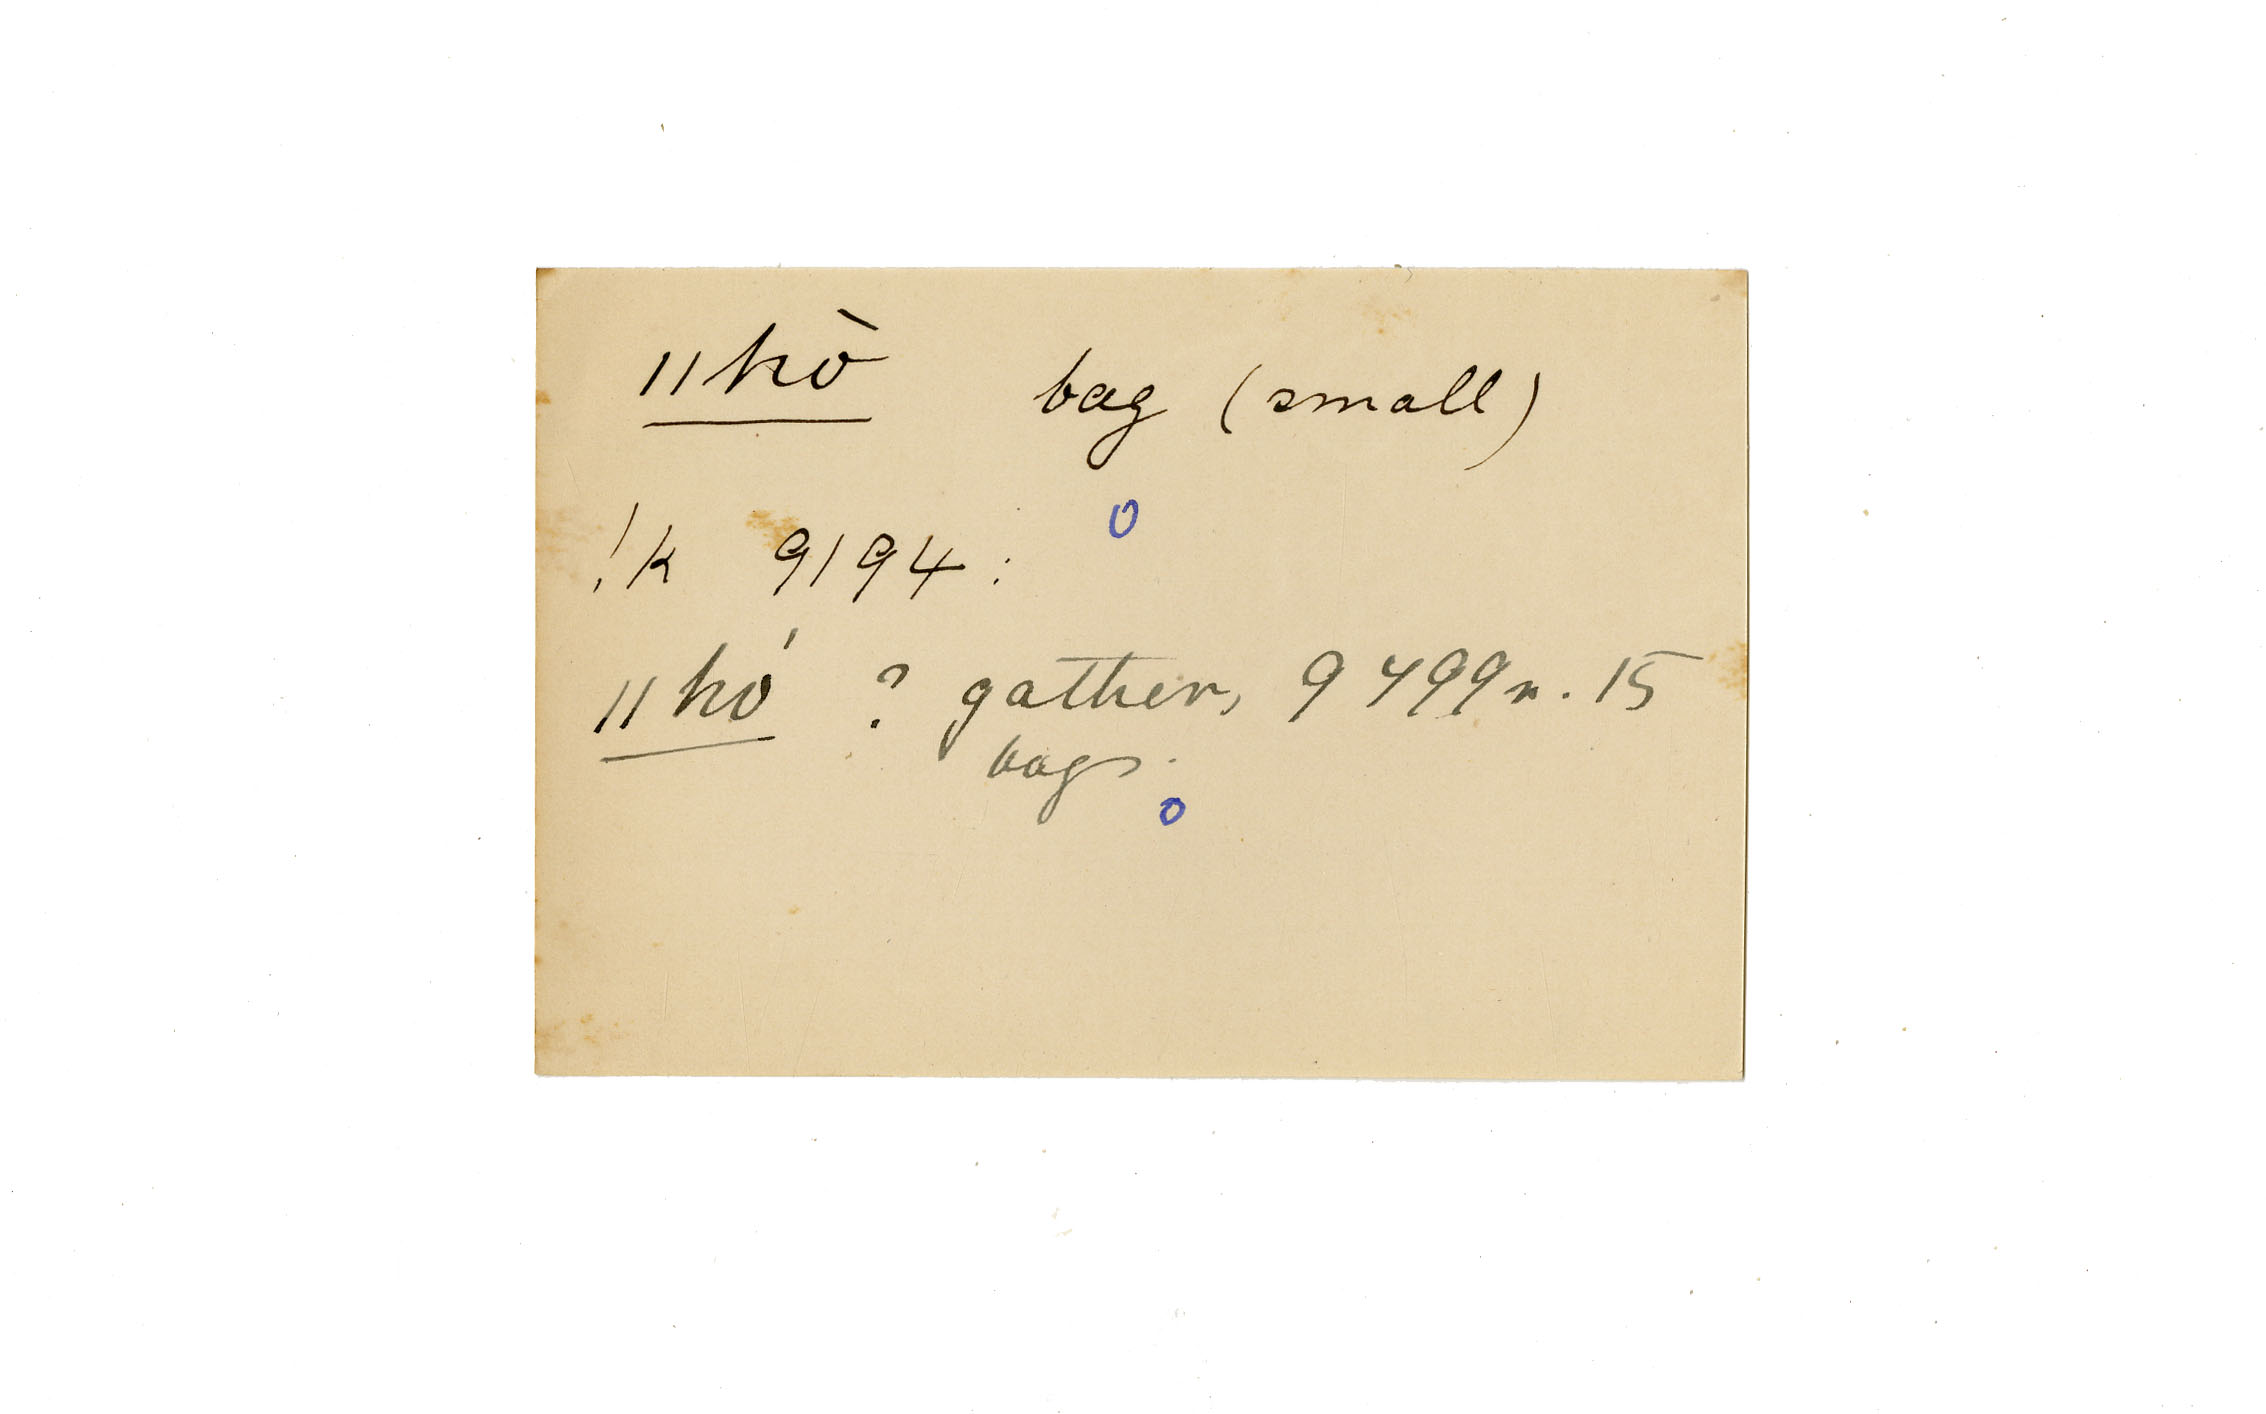 ǁhò bag (small)
o
!k 9194:
ǁhó ? gather, 9499n. 15
bags.
o